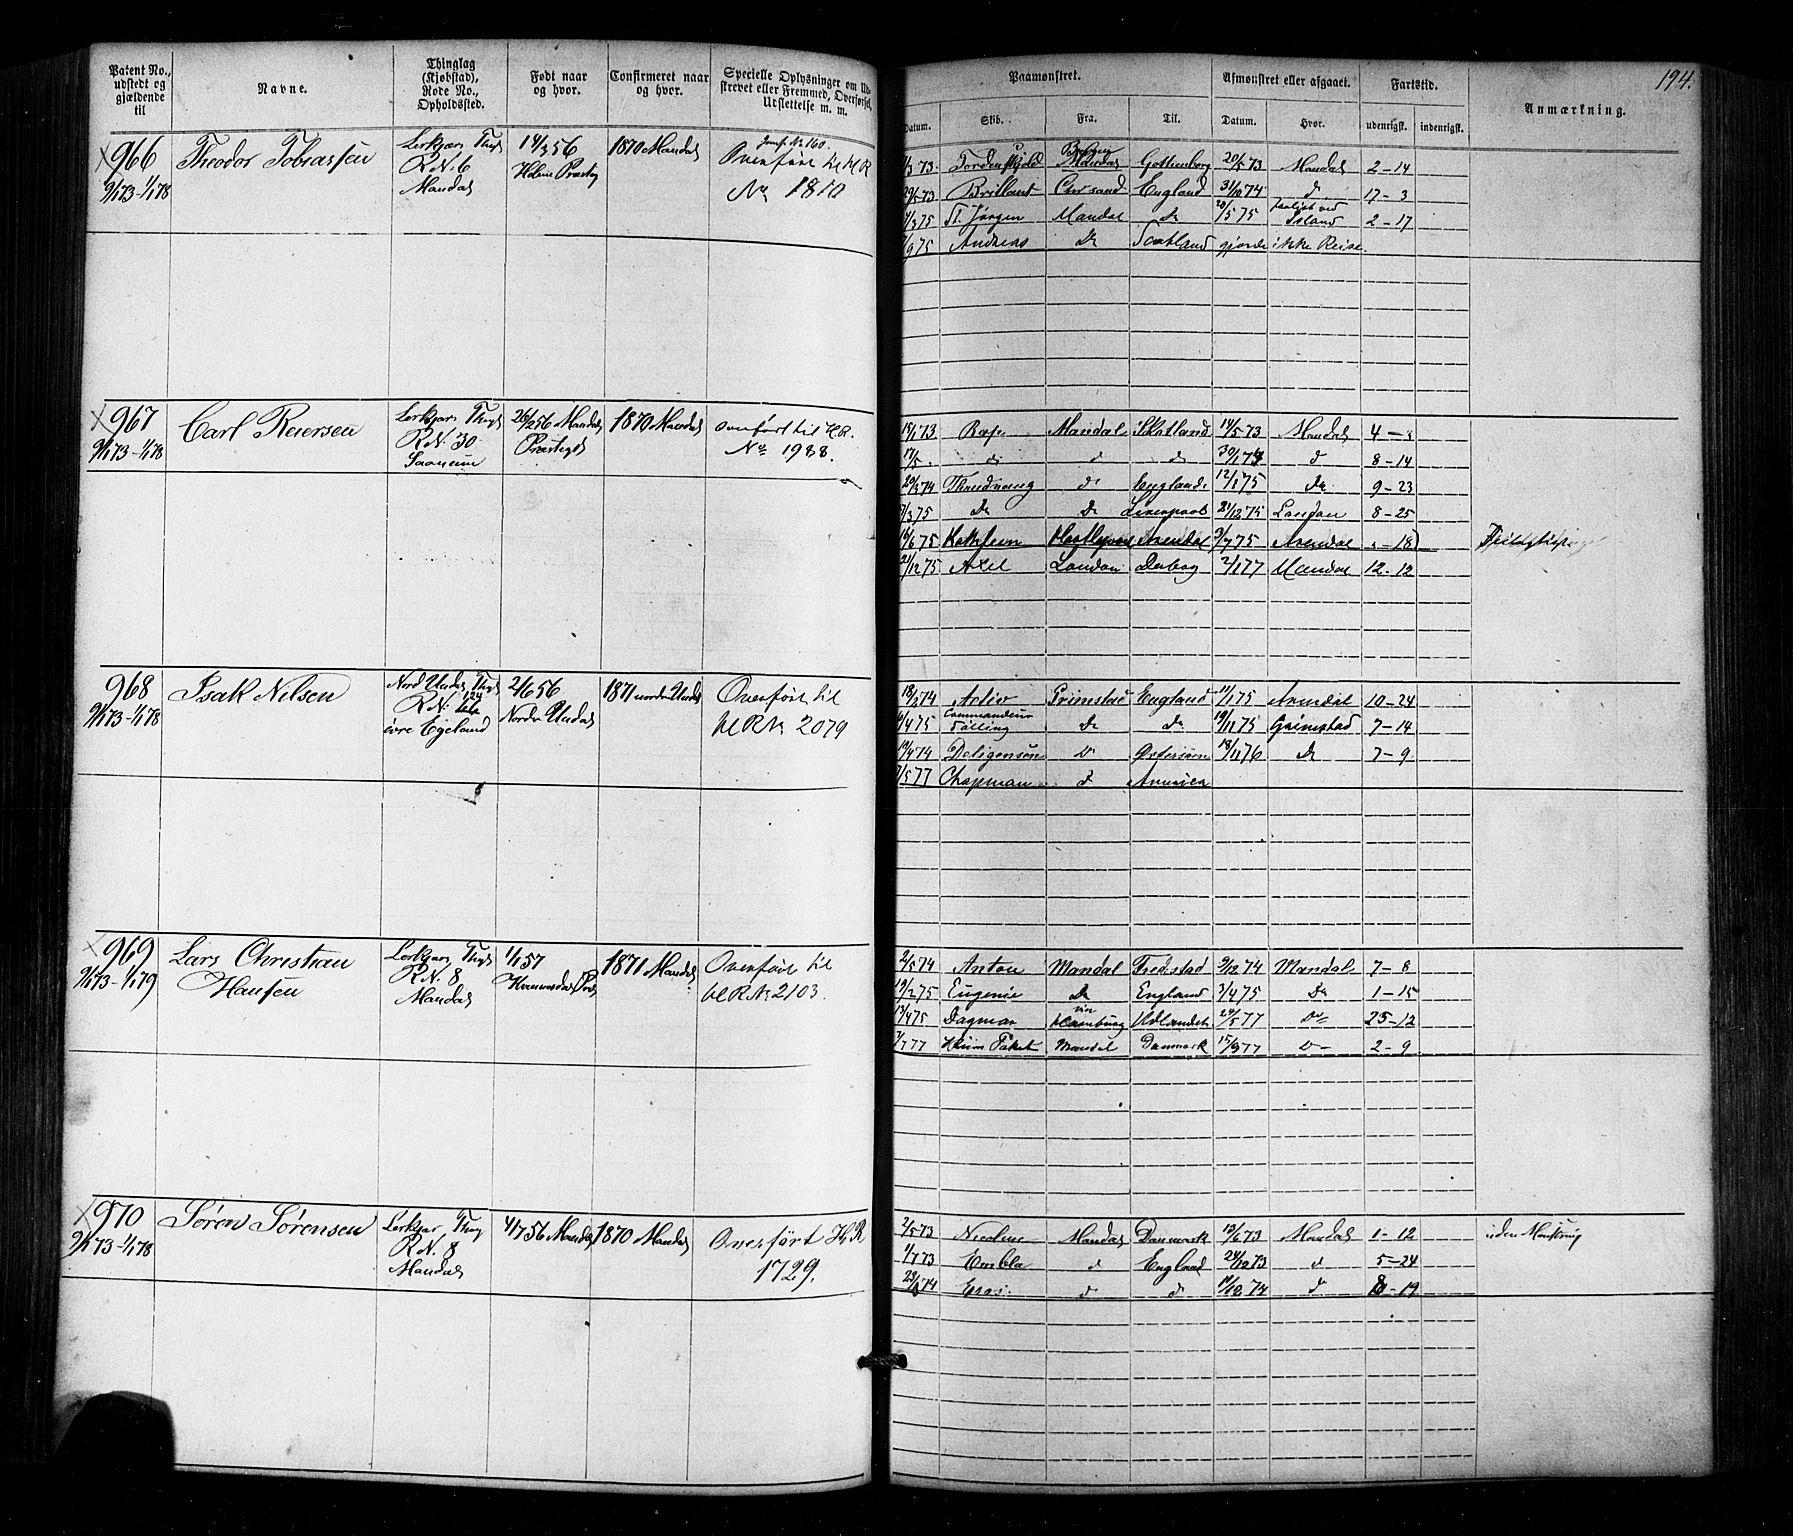 194.
Patent No., udstedt og gjældende til
Navne.
Thinglag (Kjøbstad), Rode No., Opholdssted.
Født naar og hvor.
Confirmeret naar og hvor.
Specielle Oplysninger om Udstrevet eller Fremmed, Overførsel, Udslettelse m. m.
Paamønstret.
Afmønstret eller afgaaet.
Fartstid.
Anmærkning.
Datum. Skib. Fra. Til. Datum. Hvor. udenrigsk. indenrigsk.
966
9/1 73-1/1 78
Theodor Tobiassen
Lerkjærs Thgs
R N. 6
Mandal
14/3 56
Holme Præstg
1870 Mandal
Jomf. No 160.
Overført til H R
No 1810
/3 73. Tordenskjold Mandal Gottenborg 20/5 73 Mandal 2-14
29/5 73 Brillant Chrsand England 31/10 74 d 17-3
/3 75 St. Jørgen Mandal Do /5 75 forlist ved Island 2-17
/9 75 Andreas Do Scotland gjorde ikke Reise
967
9/1 73-1/1 78
Carl Reiersen
Lerkjærs Thgs
R N. 30
26/2 56 Mandals
Præstegd
1870 Mandal
overført til H.R.
No 1988.
15/1 73 Mandal Skotland 14/5 73 Mandal 4-
17/5 d d d 30/1 74 d 8-14
20/3 74 Thrudvang d England 12/1 75 Do 9-23
/3 75 Do Do Liverpool 21/12 75 London 8-25
16/6 75 Arendal 3/7 75 Arendal -18
21/12 75 Axel London 2/1 77 Mandal 12-12
968
9/1 73-1/1 78
Isak Nilsen
Nord Undal Thgs
R N. 124
øvre Egeland
2/6 56
Nordre Undal
1871 nordre Undal
Overført til
H R No 2079
18/2 74 Activ Grimstad England 11/1 75 Arendal 10-24
/4 75 Commandeur Do Do 19/11 75 Grimstad 7-14
19/4 74 Deligensen Do Østersøen 18/11 76 Do 7-9
/5 77 Chapman d America
969
9/1 73-1/1 79
Lars Christian
Hansen
Lerkjærs Thgs
R N. 8
Mandal
1/1 57
1871 Mandal
Overført til
H R No 2103.
2/5 74 Anton Mandal Fredstad 9/12 74 Mandal 7-8
19/2 75 Eugenie Do England 3/4 75 Do 1-15
13/4 75 Dagmar Hamburg Udlandet 24/5 77 Do 25-12
/7 77 Mandal Danmark 15/9 77 Do 2-9
970
9/1 73-1/1 78
Søren Sørensen
Lerkjær Thg
R N. 8
Mandal
4/7 56 Mandal
1870 Mandal
Overført H R
1729.
2/5 73 Nicoline Mandal Danmark 13/6 73 Mandal 1-12 uden Mønstring
1/7 73 Embla d England 24/12 73 d 5-24
23/3 74 d d 14/12 74 d 8-19